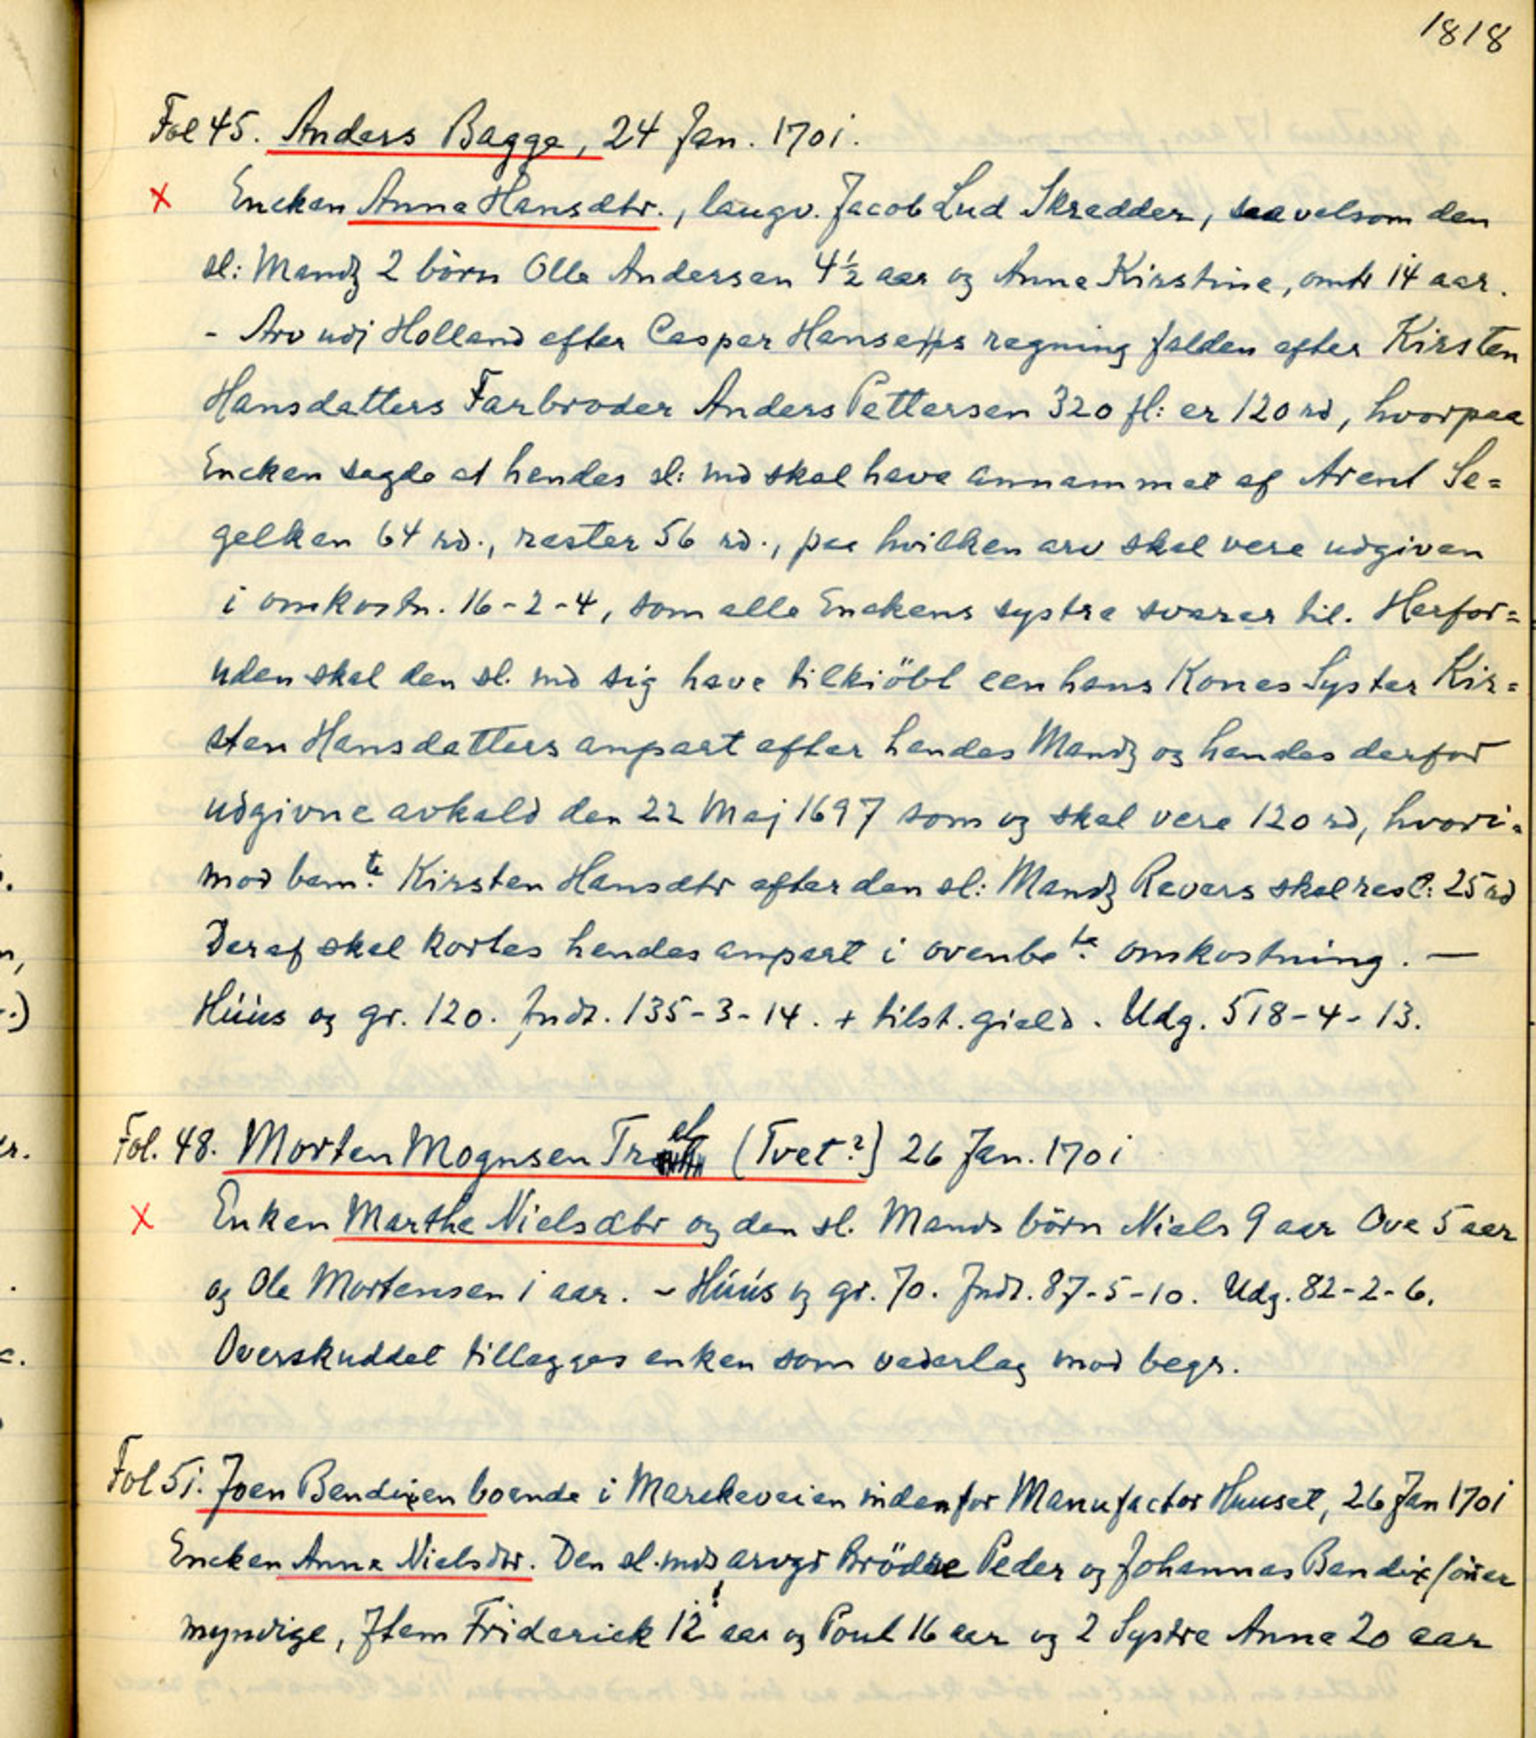 1818
Fol 45. Anders Bagge, 24 Jan. 1701.
x Encken Anna Hansdtr., laugv. Jacob Lud Skredder, saavelsom den
sl: Mandz 2 börn Olle Andersen 4½ aar og Anna Kirstine, omtr 14 aar.
- Arv udj Holland efter Casper Hansens regning falden efter Kirsten
Hansdatters Farbroder Anders Pettersen 320 fl: er 120 rd, hvorpaa
Encken sagde at hendes sl: md skal have annammet af Arent Se=
gelken 64 rd., rester 56 rd., paa hvilken arv skal vere udgiven
i omkostn. 16-2-4, som alle Enckens systre svarer til. Herfor=
uden skal den sl. md sig have tilkiöbt een hans Kones Syster Kir=
sten Hansdatters anpart efter hendes Mandz og hendes derfor
udgivne avkald den 22 Maj 1697 som og skal vere 120 rd, hvori=
mod bem.te Kirsten Hansdtr efter den sl: Mandz Revers skal rest: 25 rd
Deraf skal kortes hendes anpart i ovenbe.te omkostning. —
Húús og gr. 120. Indt. 135-3-14. + tilst. gield. Udg. 518-4-13.
Fol. 48. Morten Mognsen Tr et (Tvet?) 26 Jan. 1701
x Enken Marthe Nielsdtr og den sl. Mands börn Niels 9 aar Ove 5 aar
og Ole Mortensen 1 aar. - Húús og gr. 70. Indt. 87-5-10. Udg. 82-2-6.
Overskuddet tillegges enken som vederlag mod begr.
Fol 51. Joen Bendixen boende i Marckeveien indenfor Manufactor Huuset, 26 Jan 1701
Encken Anna Nielsdtr. Den sl. mds arvgr Brödre Peder og Johannes Bendix sönner
myndige, Item Friderick 12! aar og Poul 16 aar og 2 Systre Anna 20 aar